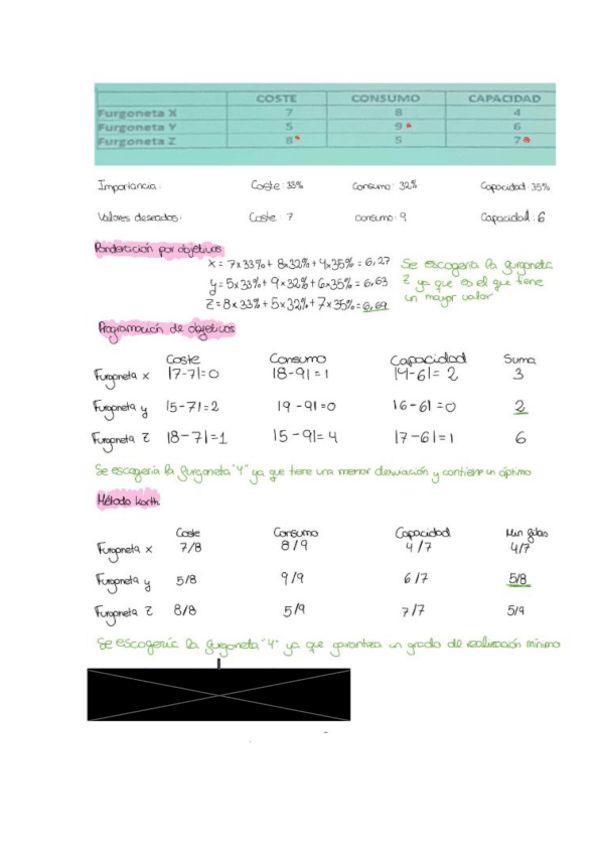 COSTE CONSUMO CAPACIDAD
Furgoneta X 7 8 4
Furgoneta Y 5 9 6
Furgoneta Z 8 5 7
Importancia: Coste: 33% Consumo: 32% Capacidad: 35%
Valores deseados: Coste: 7 Consumo: 9 Capacidad: 6
Ponderación por objetivos
X = 7x33% + 8x32% + 4x35% = 6,27
y = 5x33% + 9x32% + 6x35% = 6,63
Z = 8x33% + 5x32% + 7x35% = 6,69
Se escogería la furgoneta
Z ya que es el que tiene
un mayor valor
Programación de objetivos
Coste Consumo Capacidad Suma
Furgoneta x |7-7|=0 |8-9|=1 |4-6|=2 3
Furgoneta y |5-7|=2 |9-9|=0 |6-6|=0 2
Furgoneta Z |8-7|=1 |5-9|=4 |7-6|=1 6
Se escogería la furgoneta "Y" ya que tiene una menor desviación y contiene un óptimo
Método Korth
Coste Consumo Capacidad Min filas
Furgoneta x 7/8 8/9 4/7 4/7
Furgoneta y 5/8 9/9 6/7 5/8
Furgoneta Z 8/8 5/9 7/7 5/9
Se escogería la furgoneta "Y" ya que garantiza un grado de realización mínimo